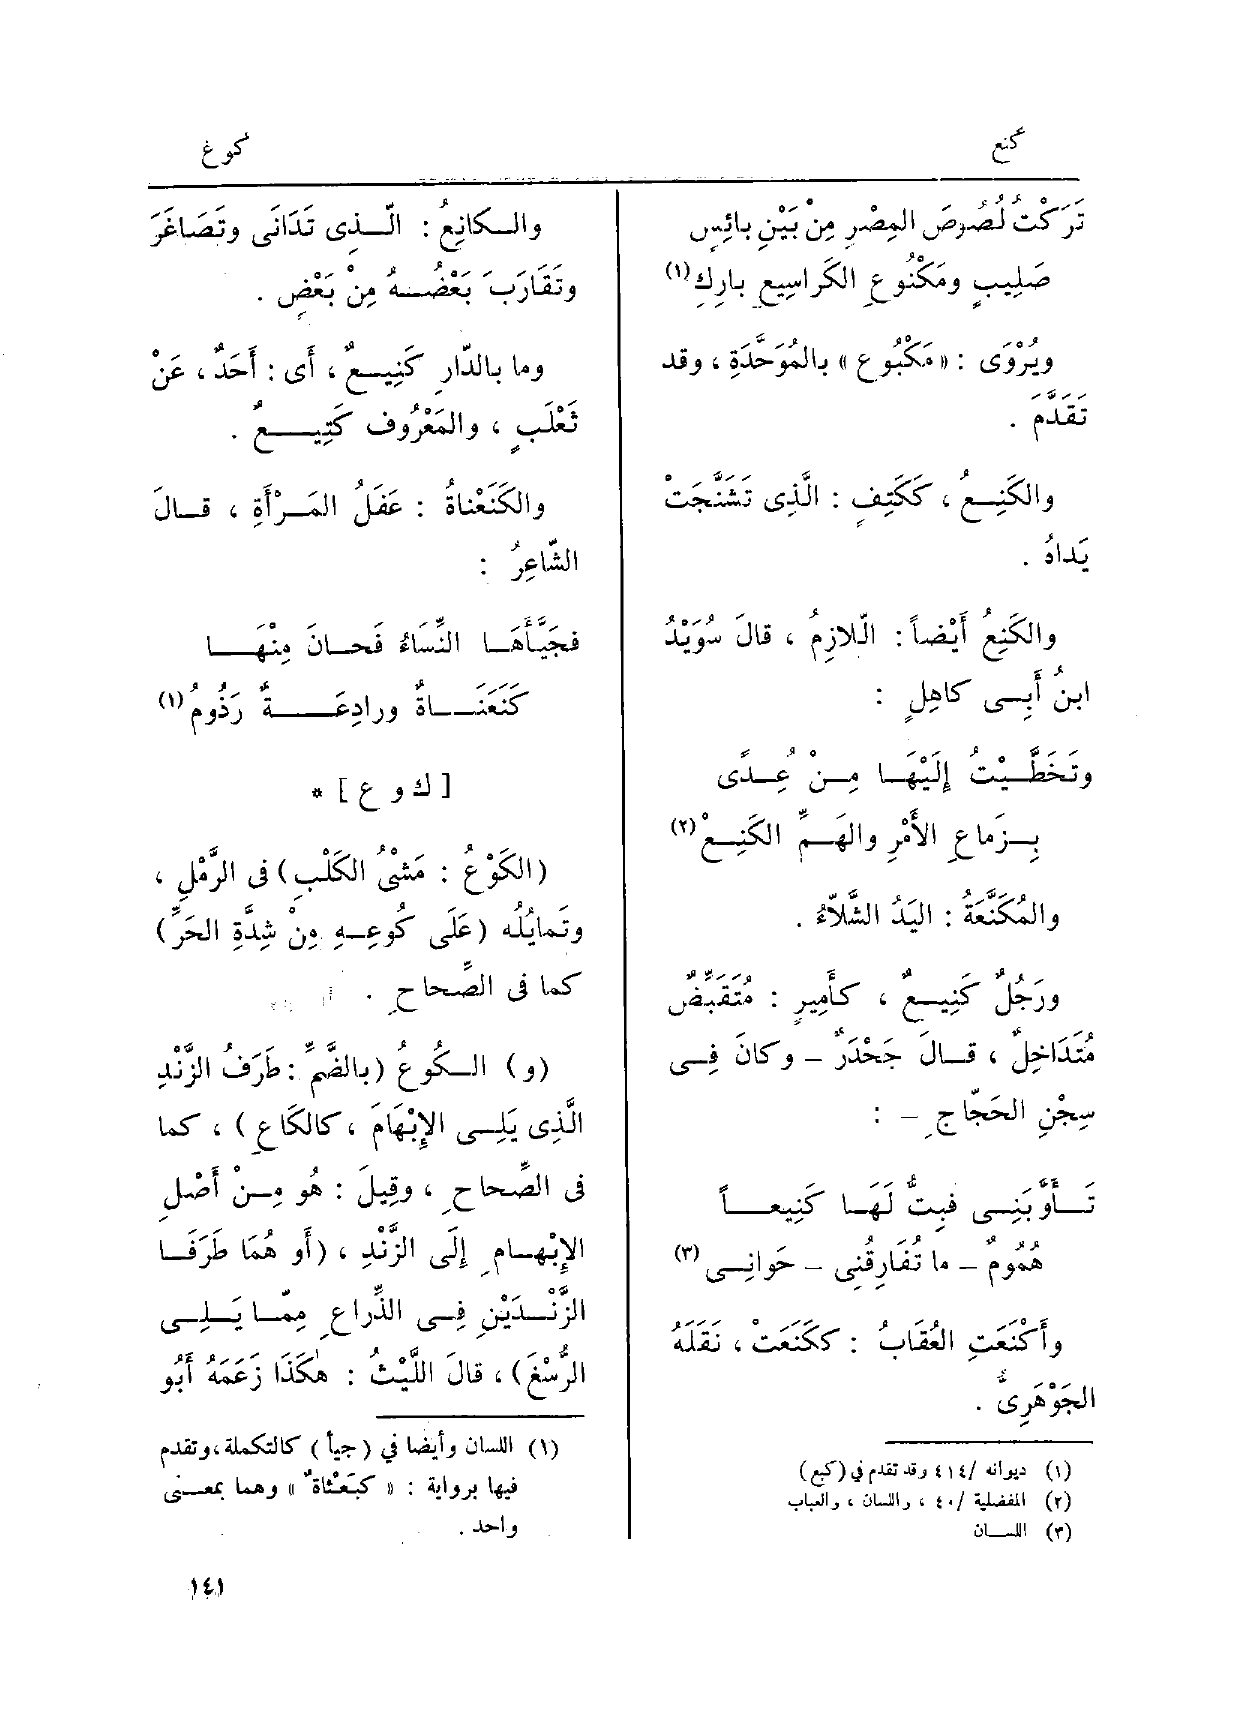 كنع
كوع
تَرَكْتُ لُصُوصَ المِصْرِ مِنْ بَيْنِ بائِسٍ
صَلِيبٍ ومَكْنُوعِ الكَراسِيعِ بارِكِ (١)
ويُرْوَى : « مَكْبُوع » بالمُوَحَّدَةِ ، وقد
تقَدَّم .
والكَنِعُ ، ككَتِفٍ : الَّذِى تَشَنَّجَتْ
يَداهُ .
والكَنِعُ أَيْضاً : الّلازِمُ ، قالَ سُوَيْدُ
ابنُ أَبِى كاهِلٍ :
وتَخَطَّيْتُ إِلَيْهَا مِنْ عُدًى
بِزَماعِ الأَمْرِ والهَمِّ الكَنِعْ (٢)
والمُكَنَّعَةُ : اليَدُ الشَّلاّءُ .
ورَجُلٌ كَنِيعٌ ، كأَمِيرٍ : مُتَقَبِّضٌ
مُتَداخِلٌ ، قالَ جَحْدَرٌ – وكانَ فِى
سِجْنِ الحَجّاجِ – :
تَأَوَّبَنِى فبِتُّ لَهَا كَنِيعاً
هُمُومٌ – ما تُفَارِقُنِى – حَوانِى (٣)
وأَكْنَعَتِ العُقَابُ : ككَنَعَتْ ، نَقَلَهُ
الجَوْهَرِىُّ .
(١) ديوانه /٤١٤ وقد تقدم في (كبع)
(٢) المفضلية /٤٠ ، واللسان ، والعباب
(٣) اللسان
والكانِعُ : الّذِى تَدَانَى وتَصَاغَرَ
وتَقارَبَ بَعْضُهُ مِنْ بَعْضٍ .
وما بالدّارِ كَنِيعٌ ، أَى : أَحَدٌ ، عَنْ
ثَعْلَبٍ ، والمَعْرُوف كَتِيعٌ .
والكَنَعْناةُ : عَفَلُ المَرْأَةِ ، قالَ
الشّاعِرُ :
فجَيَّأَهَا النِّسَاءُ فَحانَ مِنْهَا
كَنَعْنَاةٌ ورادِعَةٌ رَذُومُ (١)
[ ك و ع ] *
(الكَوْعُ : مَشْىُ الكَلْبِ) فى الرَّمْلِ ،
وتَمايُلُه (عَلَى كُوعِهِ مِنْ شِدَّةِ الحَرِّ)
كما فى الصِّحاحِ .
(و) الكُوعُ (بالضَّمِّ : طَرَفُ الزَّنْدِ
الَّذِى يَلِى الإِبْهَامَ ، كالكَاعِ) ، كما
فى الصِّحاحِ ، وقِيلَ : هُو مِنْ أَصْلِ
الإِبْهامِ إِلَى الزَّنْدِ ، (أَو هُمَا طَرَفَا
الزَّنْدَيْنِ فِى الذِّراعِ مِمّا يَلِى
الرُّسْغَ) ، قالَ اللَّيْثُ : هٰكَذَا زَعَمَهُ أَبُو
(١) اللسان وأيضا في (جيأ) كالتكملة ، وتقدم
فيها برواية : « كَبَعْثاةٌ » وهما بمعنى
واحد .
١٤١